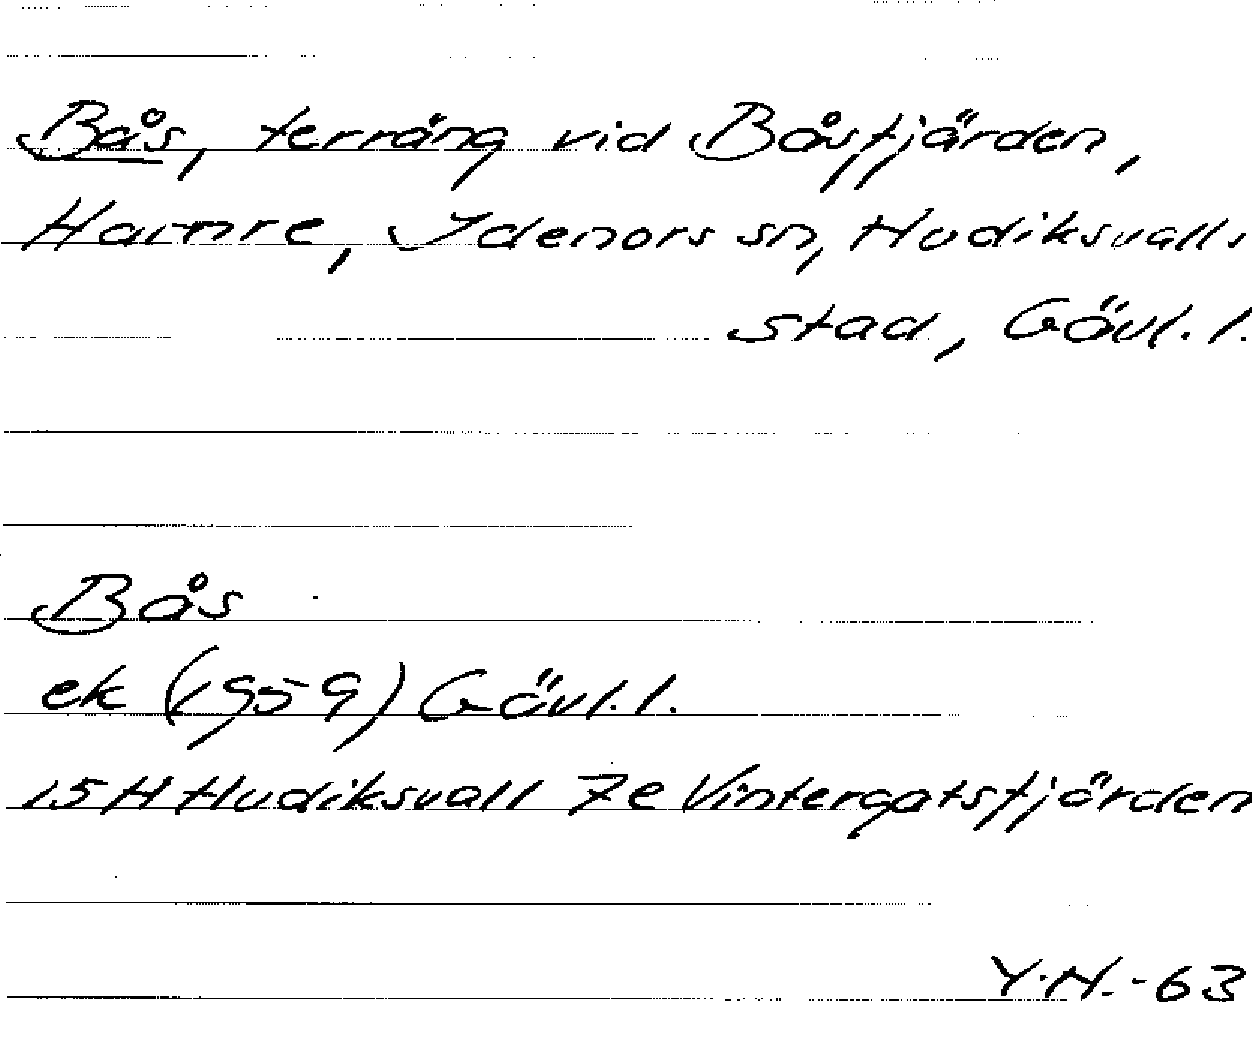 Bås, terräng vid Båsfjärden,
Hamre, Idenors sn, Hudiksvalls
stad, Gävl. l.
Bås
ek (1959) Gävl. l.
15H Hudiksvall 7e Vintergatsfjärden
Y.H.-63